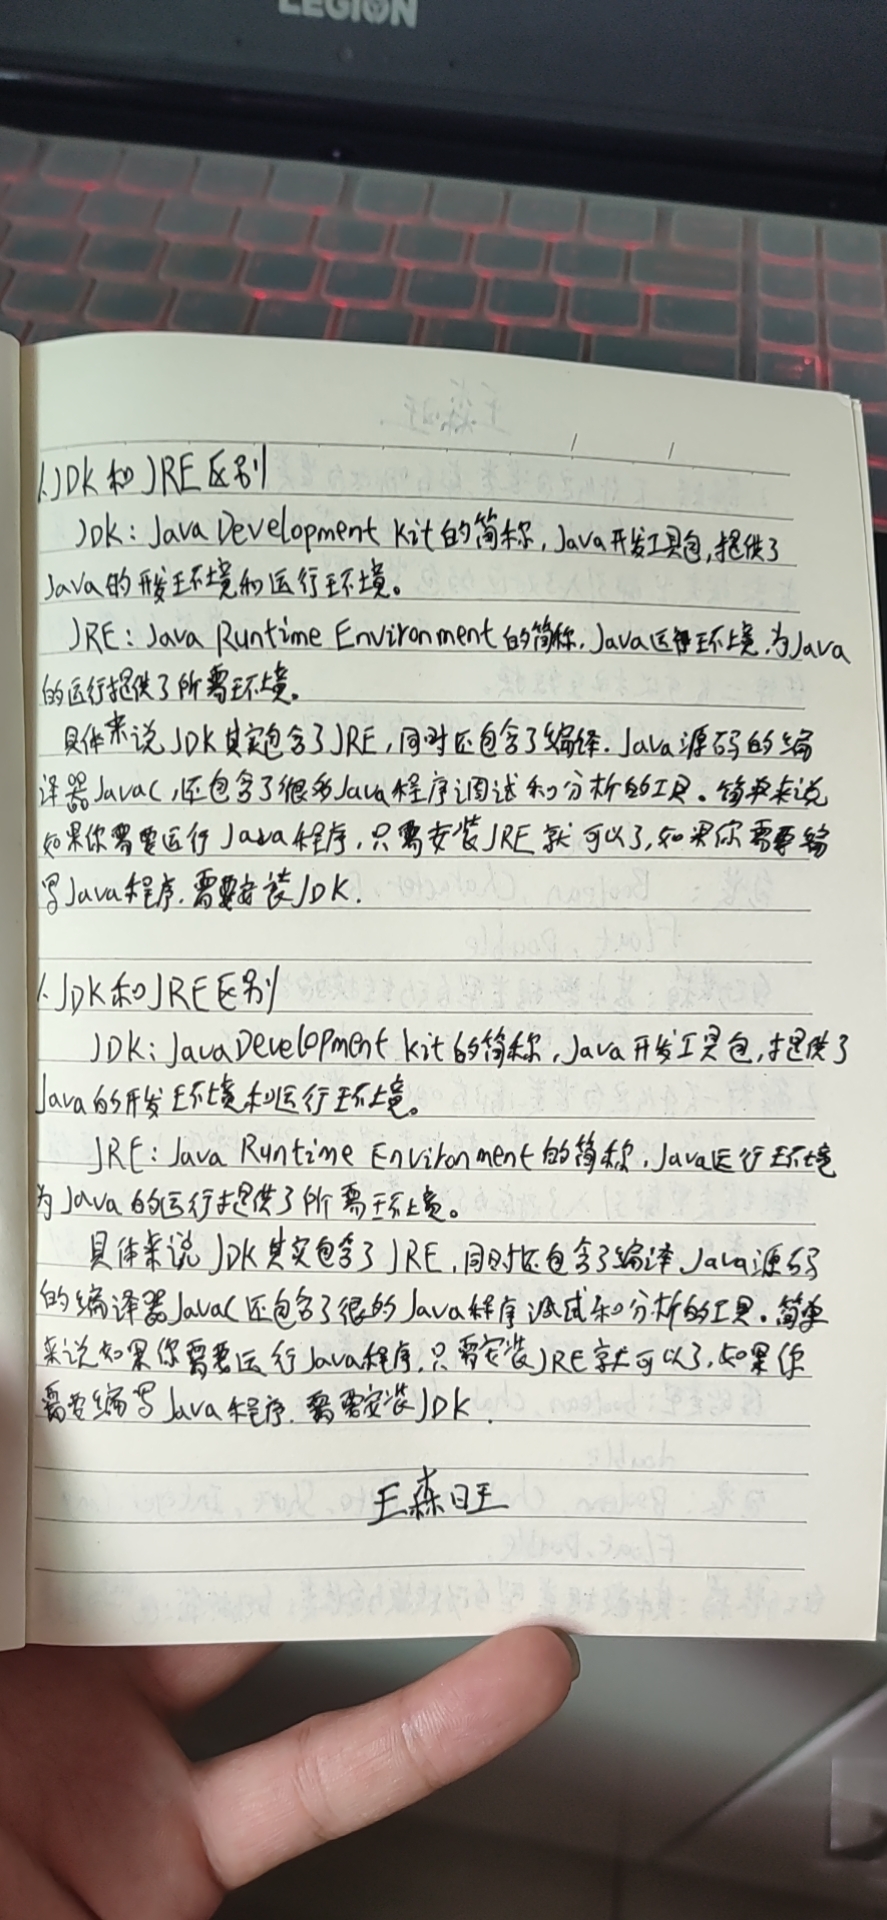 LEGION
王森旺
1.JDK和JRE区别
JDK：Java Development Kit的简称，Java开发工具包，提供了
Java的开发环境和运行环境。
JRE：Java Runtime Environment的简称，Java运行环境，为Java
的运行提供了所需环境。
具体来说JDK其实包含了JRE，同时还包含了编译，Java源码的编
译器Javac，还包含了很多Java程序调试和分析的工具。简单来说
如果你需要运行Java程序，只需安装JRE就可以了，如果你需要编
写Java程序，需要安装JDK.
1.JDK和JRE区别
JDK：Java Development Kit的简称，Java开发工具包，提供了
Java的开发环境和运行环境。
JRE：Java Runtime Environment的简称，Java运行环境
为Java的运行提供了所需环境。
具体来说JDK其实包含了JRE，同时还包含了编译，Java源码
的编译器Javac还包含了很的Java程序调试和分析的工具。简单
来说如果你需要运行Java程序，只需安装JRE就可以了，如果你
需要编写Java程序，需要安装JDK.
王森旺